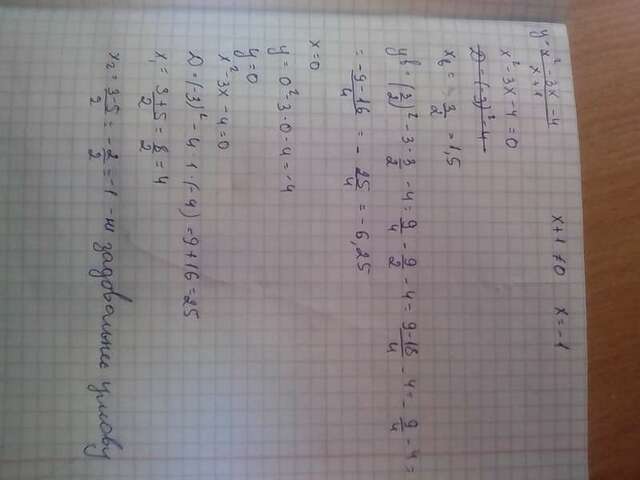 y = (x² - 3x - 4)/(x + 1)   x + 1 ≠ 0   x = -1
x² - 3x - 4 = 0
D = (-3)² - 4
xв = 3/2 = 1,5
yв = (3/2)² - 3 · 3/2 - 4 = 9/4 - 9/2 - 4 = (9 - 18)/4 - 4 = - 9/4 - 4 =
= (-9 - 16)/4 = - 25/4 = - 6,25
x = 0
y = 0² - 3 · 0 - 4 = -4
y = 0
x² - 3x - 4 = 0
D = (-3)² - 4 · 1 · (-4) = 9 + 16 = 25
x₁ = (3 + 5)/2 = 8/2 = 4
x₂ = (3 - 5)/2 = - 2/2 = -1 - не задовольняє умову